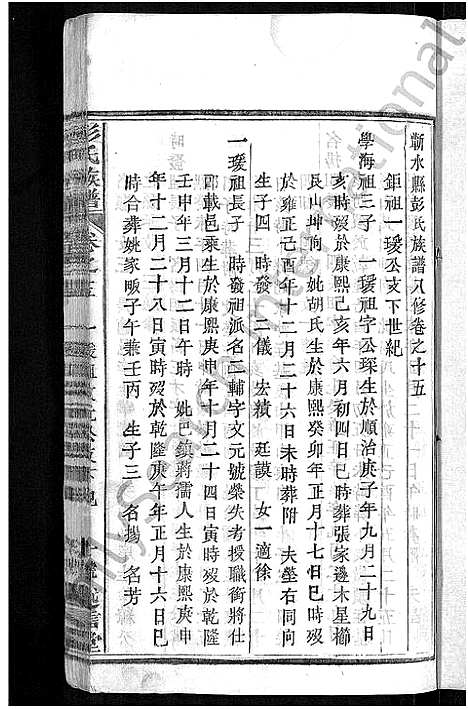 蘄水縣彭氏族譜八修卷之十五
鉅祖一瑗公支下世紀
學海祖三子　一瑗祖字公琛生於順治庚子年九月二十九日
亥時歿於康熙己亥年六月初四日巳時葬張家邊木星櫛
艮山坤向　妣胡氏生於康熙癸卯年正月十七日巳時歿
於雍正己酉年十二月二十六日未時葬附　夫塋右同向
生子四　時發　二儀　宏績　廷謨　女一適徐
一瑗祖長子　時發祖派名二輔字文元號榮失考授職銜將仕
郎載邑乘生於康熙庚申年十月二十四日寅時歿於乾隆
壬申年三月十二日午時　妣巴鎮蔣孺人生於康熙庚申
年十二月二十八日寅時歿於乾隆庚午年正月十六日巳
時合葬姚家畈子午兼壬丙　生子三　名揚　名芳
彭氏族譜　卷之十五